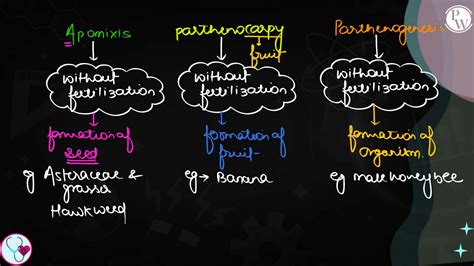 Apomixis
without
fertilization
formation of
seed
eg Asteraceae &
grasses
Hawkweed
parthenocarpy
fruit
without
fertilization
formation of
fruit
eg → Banana
Parthenogenesis
without
fertilization
formation of
organism.
eg male honey bee
PW